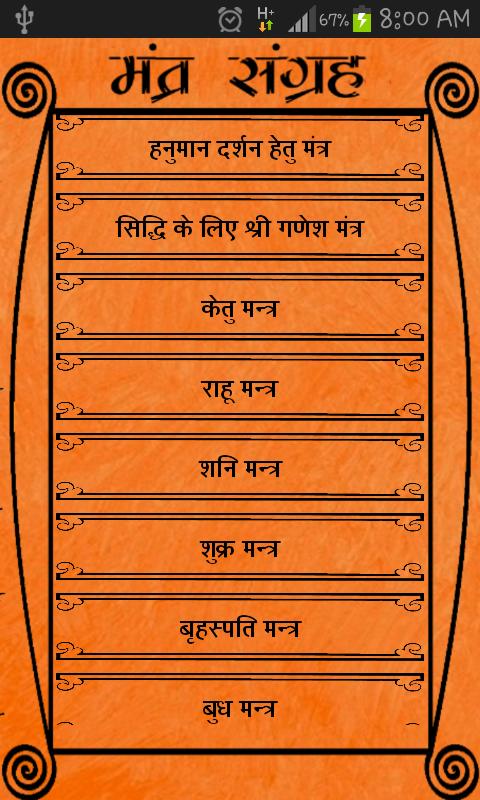 H+ 67% 8:00 AM
मंत्र संग्रह
हनुमान दर्शन हेतु मंत्र
सिद्धि के लिए श्री गणेश मंत्र
केतु मन्त्र
राहू मन्त्र
शनि मन्त्र
शुक्र मन्त्र
बृहस्पति मन्त्र
बुध मन्त्र